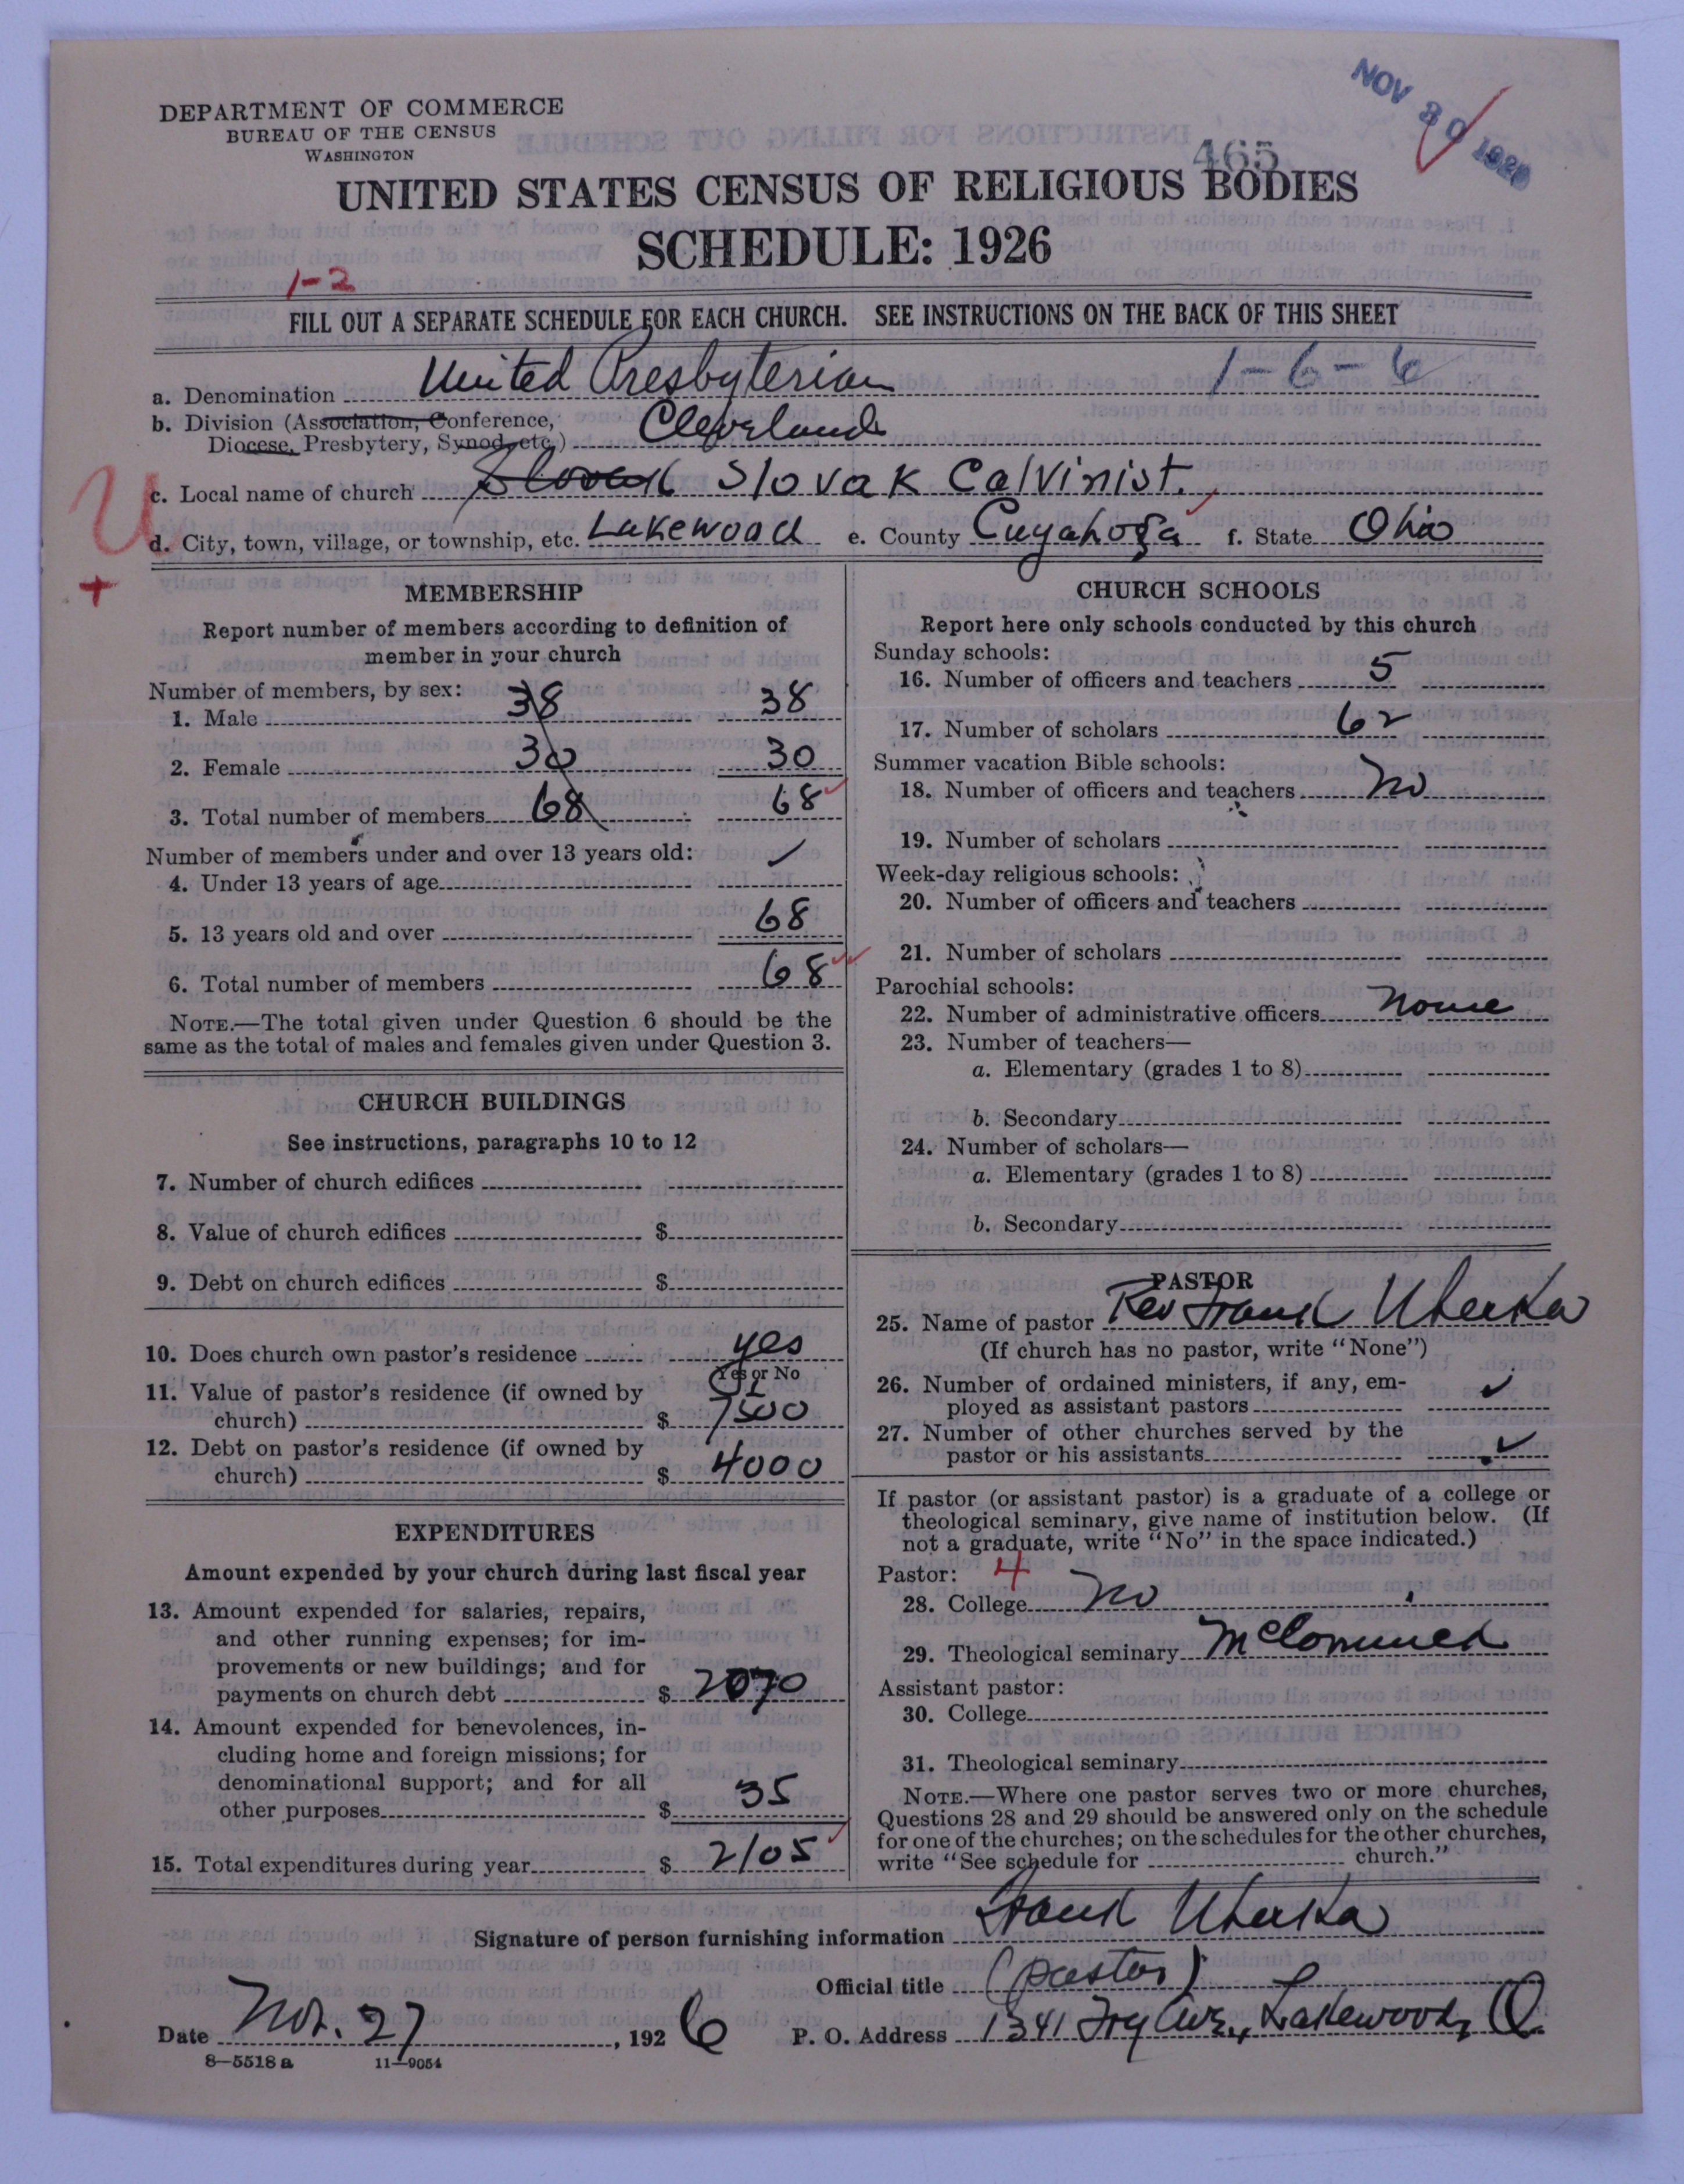 NOV 30 1926
DEPARTMENT OF COMMERCE
BUREAU OF THE CENSUS
WASHINGTON
465
UNITED STATES CENSUS OF RELIGIOUS BODIES
SCHEDULE: 1926
1-2
FILL OUT A SEPARATE SCHEDULE FOR EACH CHURCH. SEE INSTRUCTIONS ON THE BACK OF THIS SHEET
a. Denomination United Presbyterian 1-6-6
b. Division (Association, Conference, Diocese, Presbytery, Synod, etc.) Cleveland
c. Local name of church Slovak Slovak Calvinist.
d. City, town, village, or township, etc. Lakewood e. County Cuyahoga f. State Ohio
U
+
MEMBERSHIP
Report number of members according to definition of
member in your church
Number of members, by sex:
1. Male 38 38
2. Female 30 30
3. Total number of members 68 68
Number of members under and over 13 years old:
4. Under 13 years of age
5. 13 years old and over 68
6. Total number of members 68
NOTE.—The total given under Question 6 should be the
same as the total of males and females given under Question 3.
CHURCH BUILDINGS
See instructions, paragraphs 10 to 12
7. Number of church edifices
8. Value of church edifices $
9. Debt on church edifices $
10. Does church own pastor's residence yes
Yes or No
11. Value of pastor's residence (if owned by
church) $ 7500
12. Debt on pastor's residence (if owned by
church) $ 4000
EXPENDITURES
Amount expended by your church during last fiscal year
13. Amount expended for salaries, repairs,
and other running expenses; for im-
provements or new buildings; and for
payments on church debt $ 2070
14. Amount expended for benevolences, in-
cluding home and foreign missions; for
denominational support; and for all
other purposes $ 35
15. Total expenditures during year $ 2105
CHURCH SCHOOLS
Report here only schools conducted by this church
Sunday schools:
16. Number of officers and teachers 5
17. Number of scholars 62
Summer vacation Bible schools:
18. Number of officers and teachers no
19. Number of scholars
Week-day religious schools:
20. Number of officers and teachers
21. Number of scholars
Parochial schools:
22. Number of administrative officers none
23. Number of teachers—
a. Elementary (grades 1 to 8)
b. Secondary
24. Number of scholars—
a. Elementary (grades 1 to 8)
b. Secondary
PASTOR
25. Name of pastor Rev Frank Uherka
(If church has no pastor, write "None")
26. Number of ordained ministers, if any, em-
ployed as assistant pastors
27. Number of other churches served by the
pastor or his assistants
If pastor (or assistant pastor) is a graduate of a college or
theological seminary, give name of institution below. (If
not a graduate, write "No" in the space indicated.)
Pastor: 4
28. College no
29. Theological seminary
Assistant pastor:
30. College
31. Theological seminary
NOTE.—Where one pastor serves two or more churches,
Questions 28 and 29 should be answered only on the schedule
for one of the churches; on the schedules for the other churches,
write "See schedule for church."
Signature of person furnishing information Frank Uherka
Official title (pastor)
Date Nov. 27, 1926 P. O. Address 1341 Fry Ave., Lakewood, O.
8—5518 a 11—9054